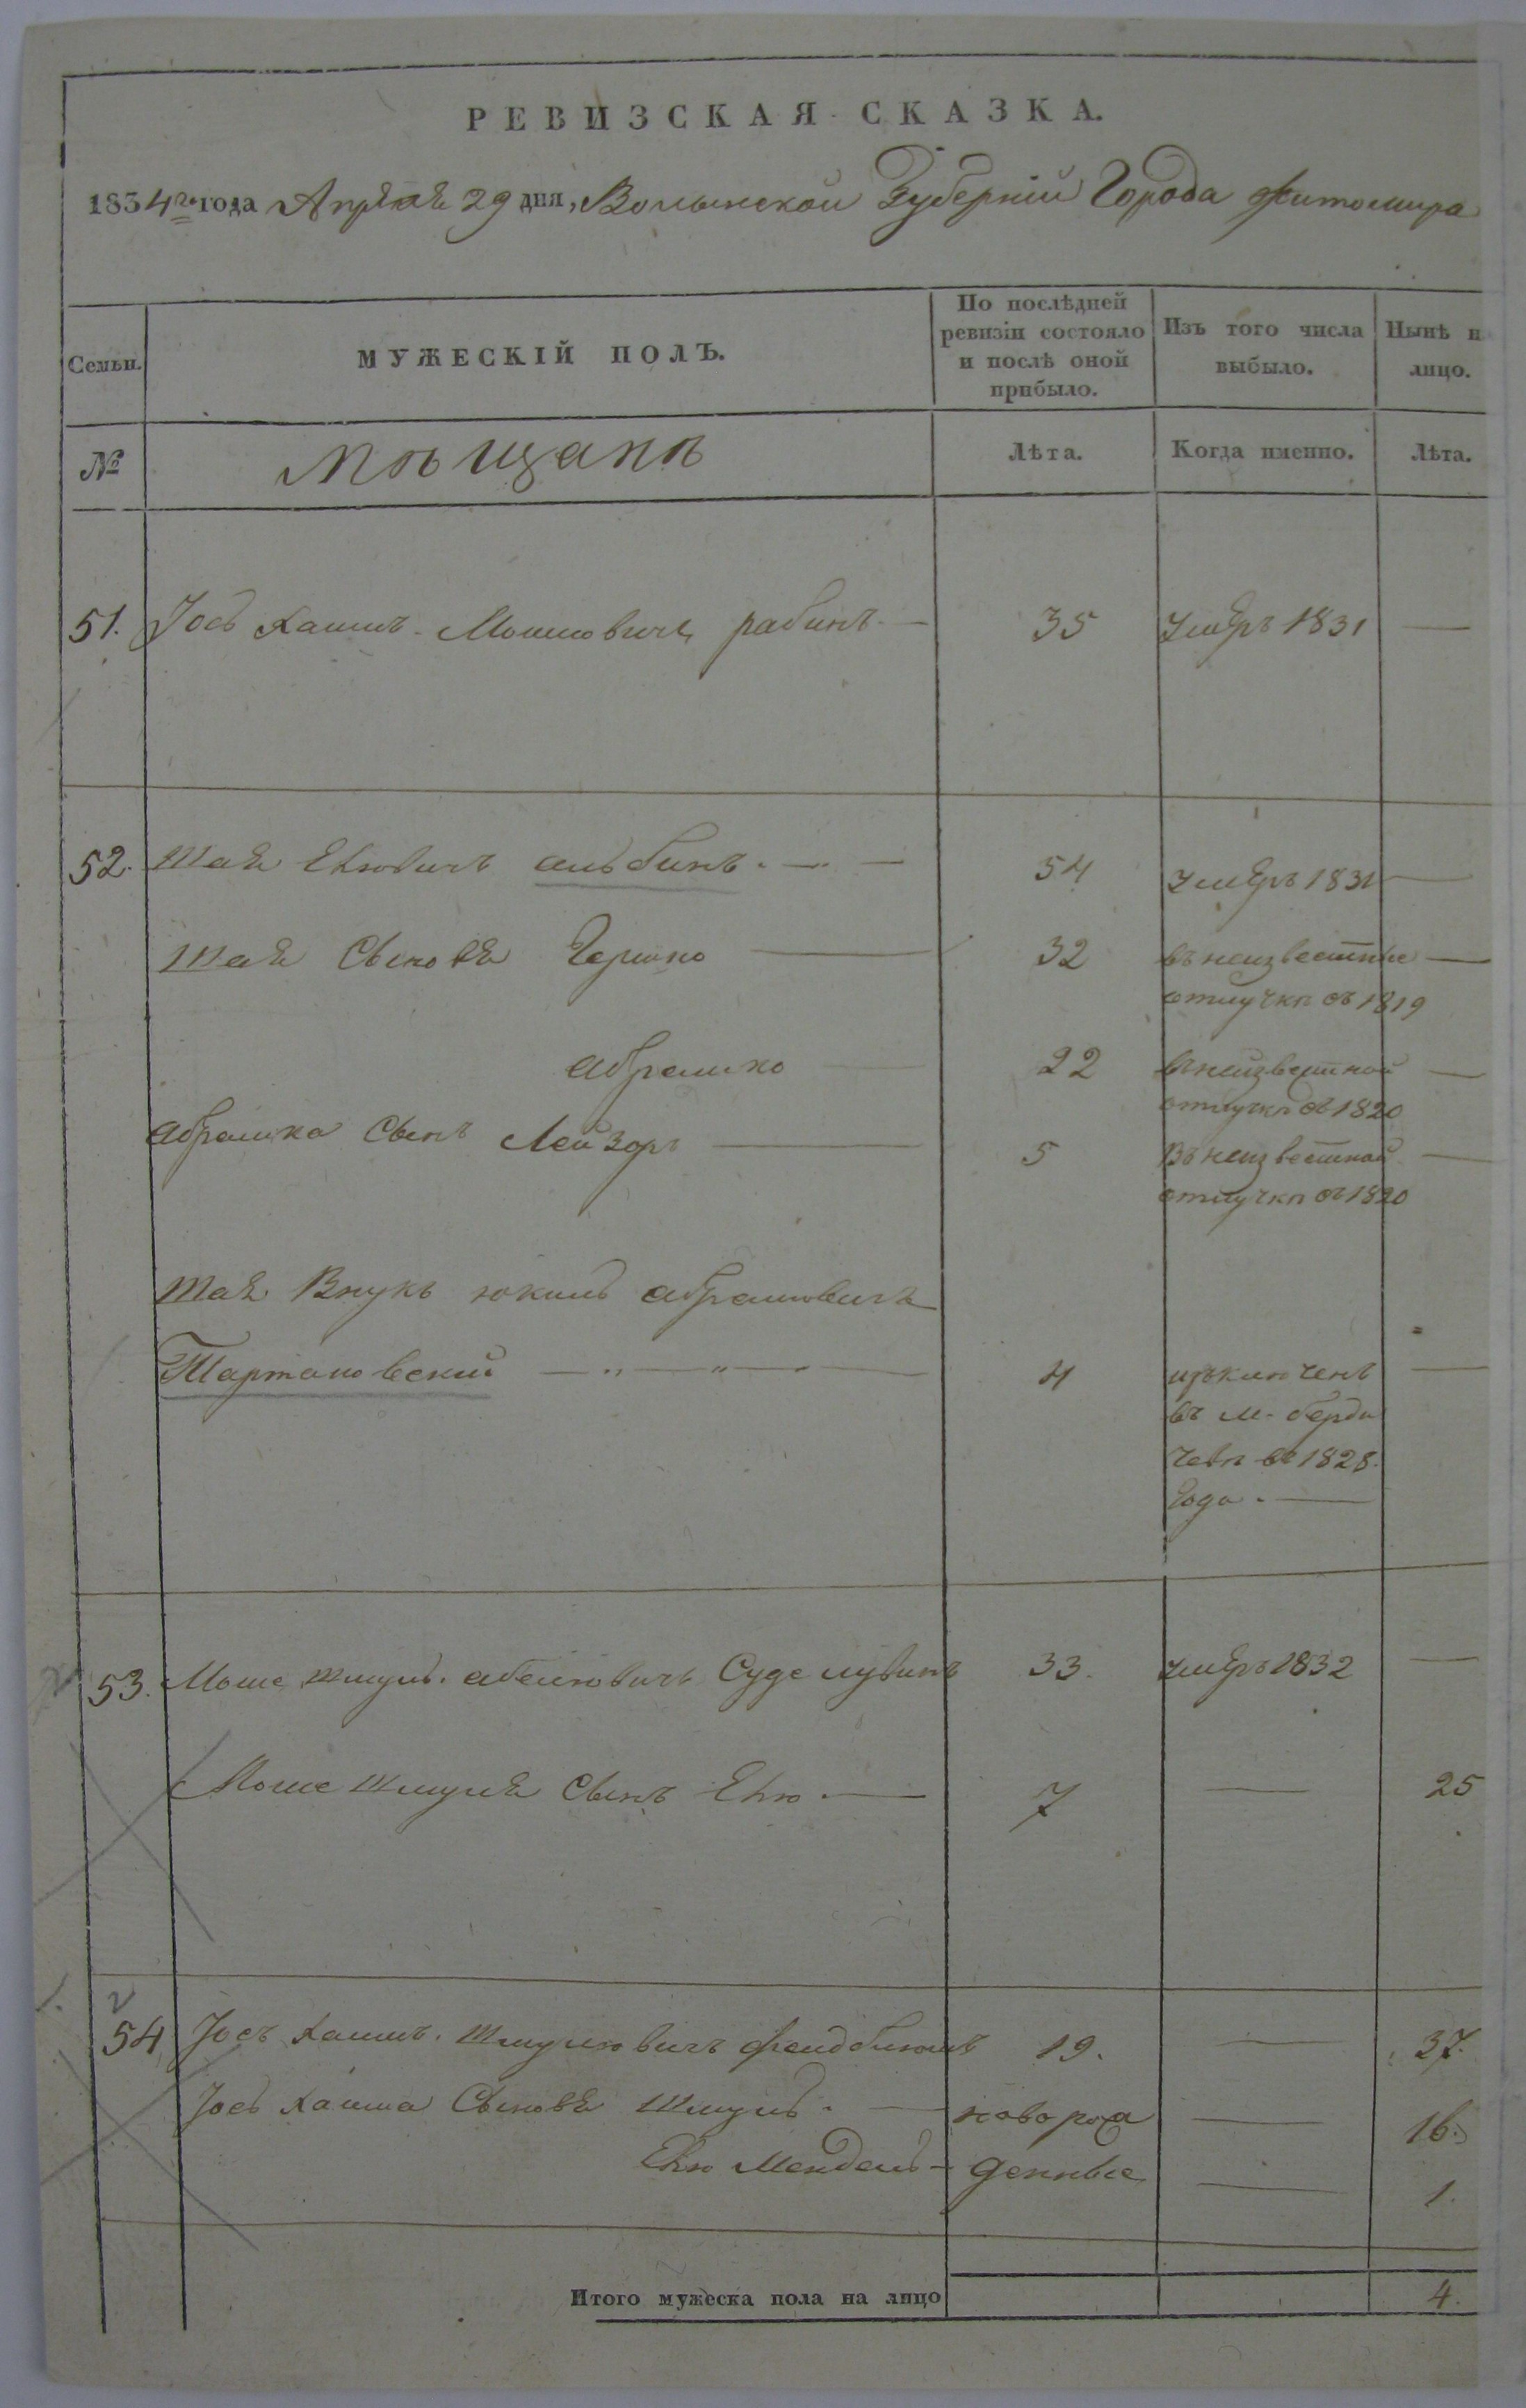 РЕВИЗСКАЯ СКАЗКА.
1834го года Апрѣля 29 дня, Волынской Губерніи Города Житомира
Семьи. МУЖЕСКІЙ ПОЛЪ. По послѣдней ревизіи состояло и послѣ оной прибыло. Изъ того числа выбыло. Нынѣ н лицо.
№ Мѣщанѣ Лѣта. Когда именно. Лѣта.
51. Іось Хаимъ Мошковичъ рабинъ — 35 умеръ 1831 —
52. Шая Екювичъ альбинъ — 54 умеръ 1831 —
Шая Сыновя Гершко — 32 въ неизвестные —
отлучкѣ съ 1819
абрамко — 22 в неизвестной —
отлучкѣ съ 1820
абрамка Сынъ Лейзоръ — 5 Въ неизвестной —
отлучкѣ съ 1820
Шая Внукъ юкиль абрамовичъ
Тартаковский — 4 изключенъ —
въ м. берди
чевѣ в 1828.
Года. —
53. Моше Шмуль абелювичъ 33. умеръ 1832 —
Моше Шмуля Сынъ Екю — 7 — 25
54 Іось Хаимъ Шмулювичъ 19. — 37.
Іось Хаима Сыновя Шмуль — новорож — 16.
Екю Мендель — денные — 1.
Итого мужеска пола на лицо 4.